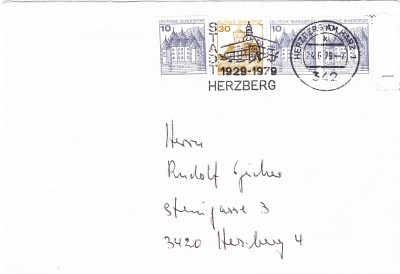 10 DEUTSCHE BUNDESPOST
30 DEUTSCHE BUNDESPOST
10 DEUTSCHE BUNDESPOST
10 DEUTSCHE BUNDESPOST
STADT
1929-1979
HERZBERG
HERZBERG AM HARZ 1
342
Herrn
Rudolf
Steingasse 3
3420 Herzberg 4